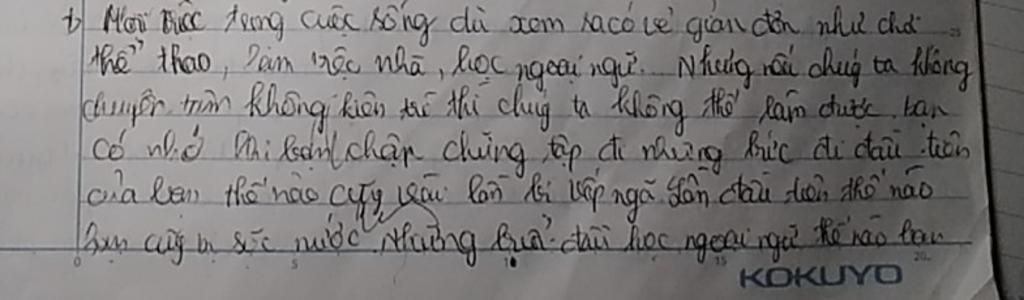 Mọi việc trong cuộc sống dù xem ra có vẻ giản đơn như chơi
thể thao, làm việc nhà, học ngoại ngữ. Nhưng nếu chúg ta không
chuyên tâm không kiên trì thì chúg ta không thể làm được. bạn
có nhớ khi chập chững tập đi những bước đi đầu tiên
của bạn thế nào cũg vài lần bị vấp ngã. lần đầu tiên thế nào
bạn cũg bị sặc nước. Những buổi đầu học ngoại ngữ thế nào bạn
0 5 10 15 20
KOKUYO